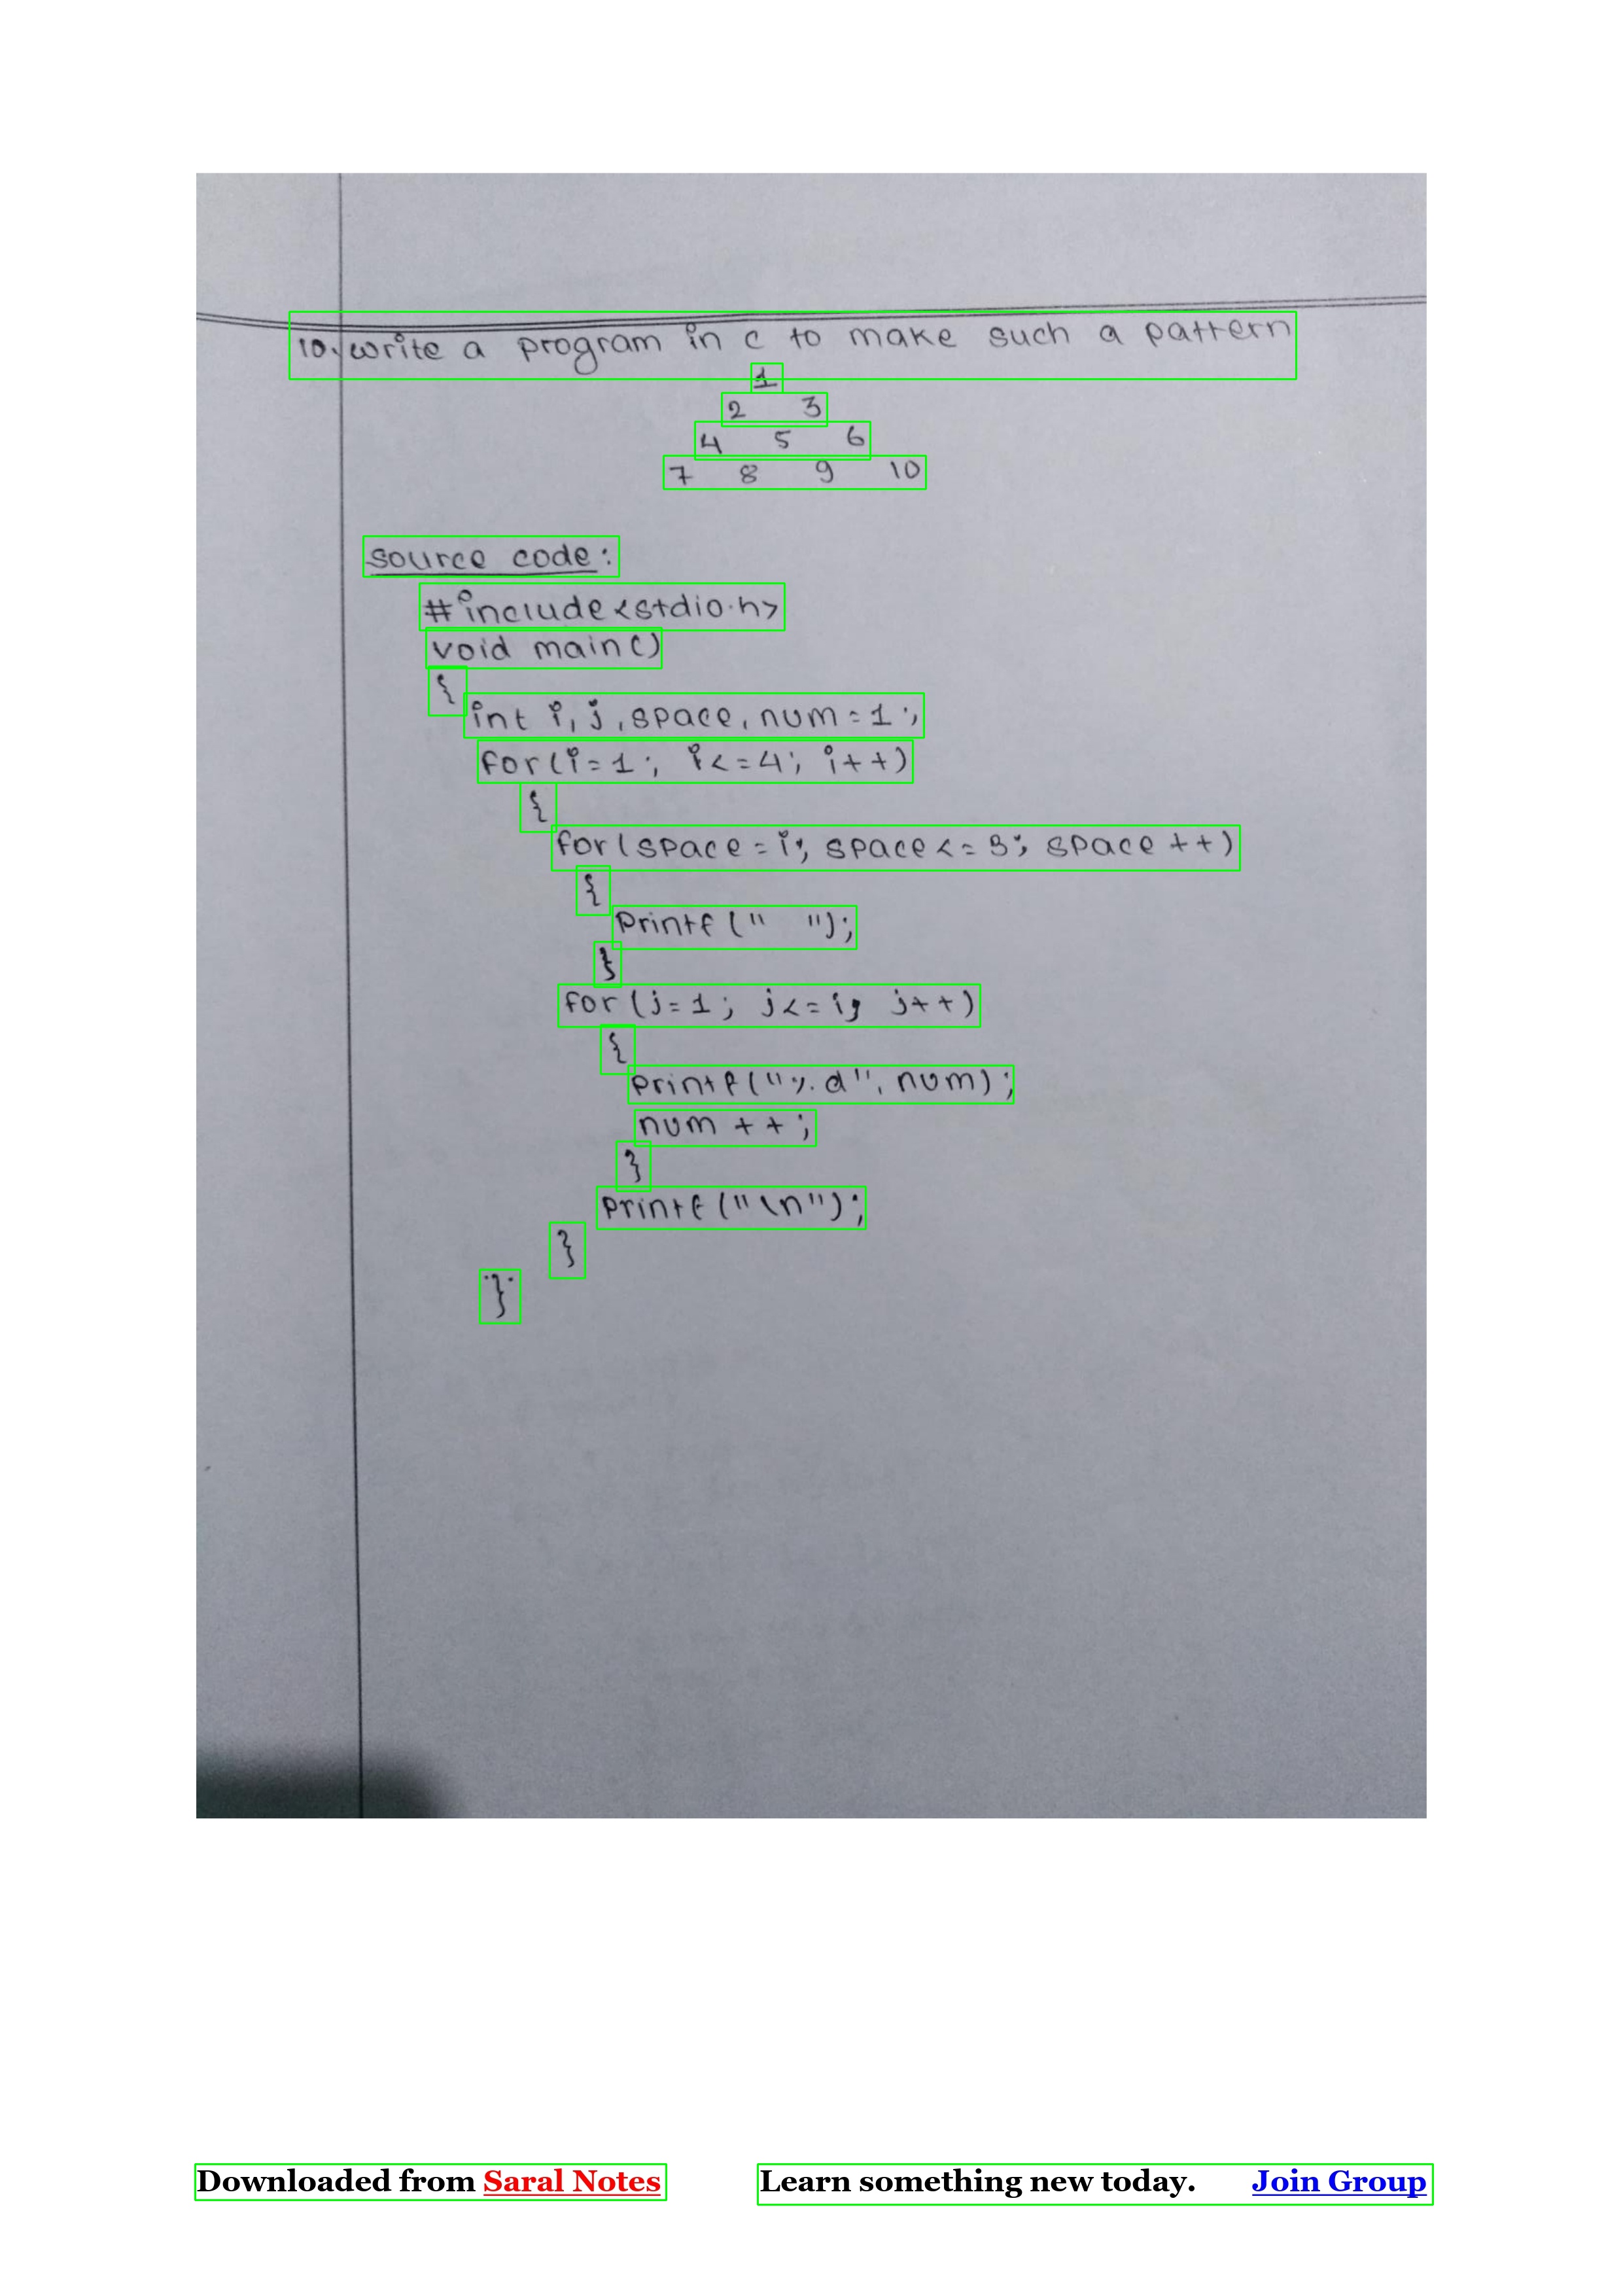 10. write a program in c to make such a pattern
1
2 3
4 5 6
7 8 9 10
source code:
#include<stdio.h>
void main()
{
int i, j, space, num=1;
for(i=1; i<=4; i++)
{
for(space=i; space<=3; space++)
{
printf("  ");
}
for(j=1; j<=i; j++)
{
printf("%d", num);
num++;
}
printf("\n");
}
}
Downloaded from Saral Notes Learn something new today. Join Group